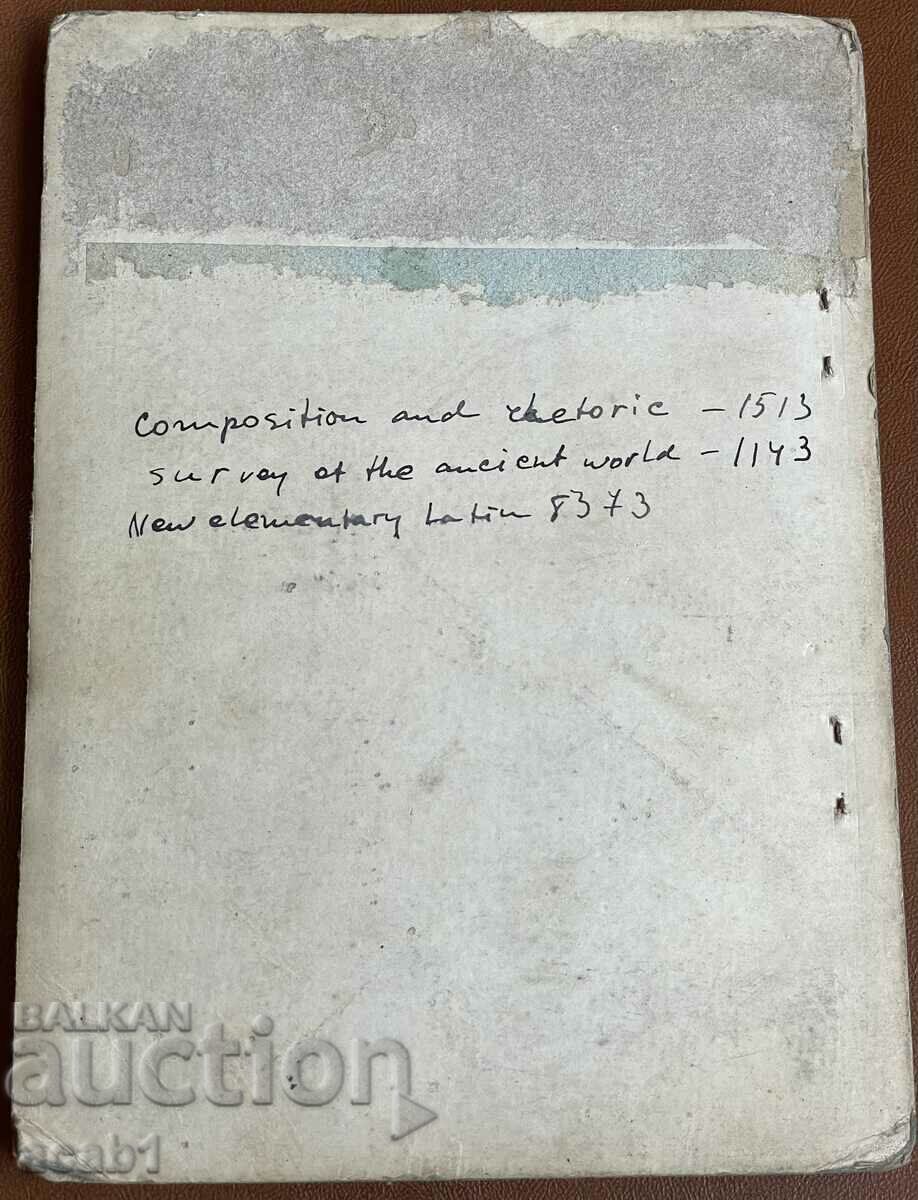 Composition and rhetoric – 1513
survey of the ancient world – 1143
New elementary Latin 8373
BALKAN
auction
acab1